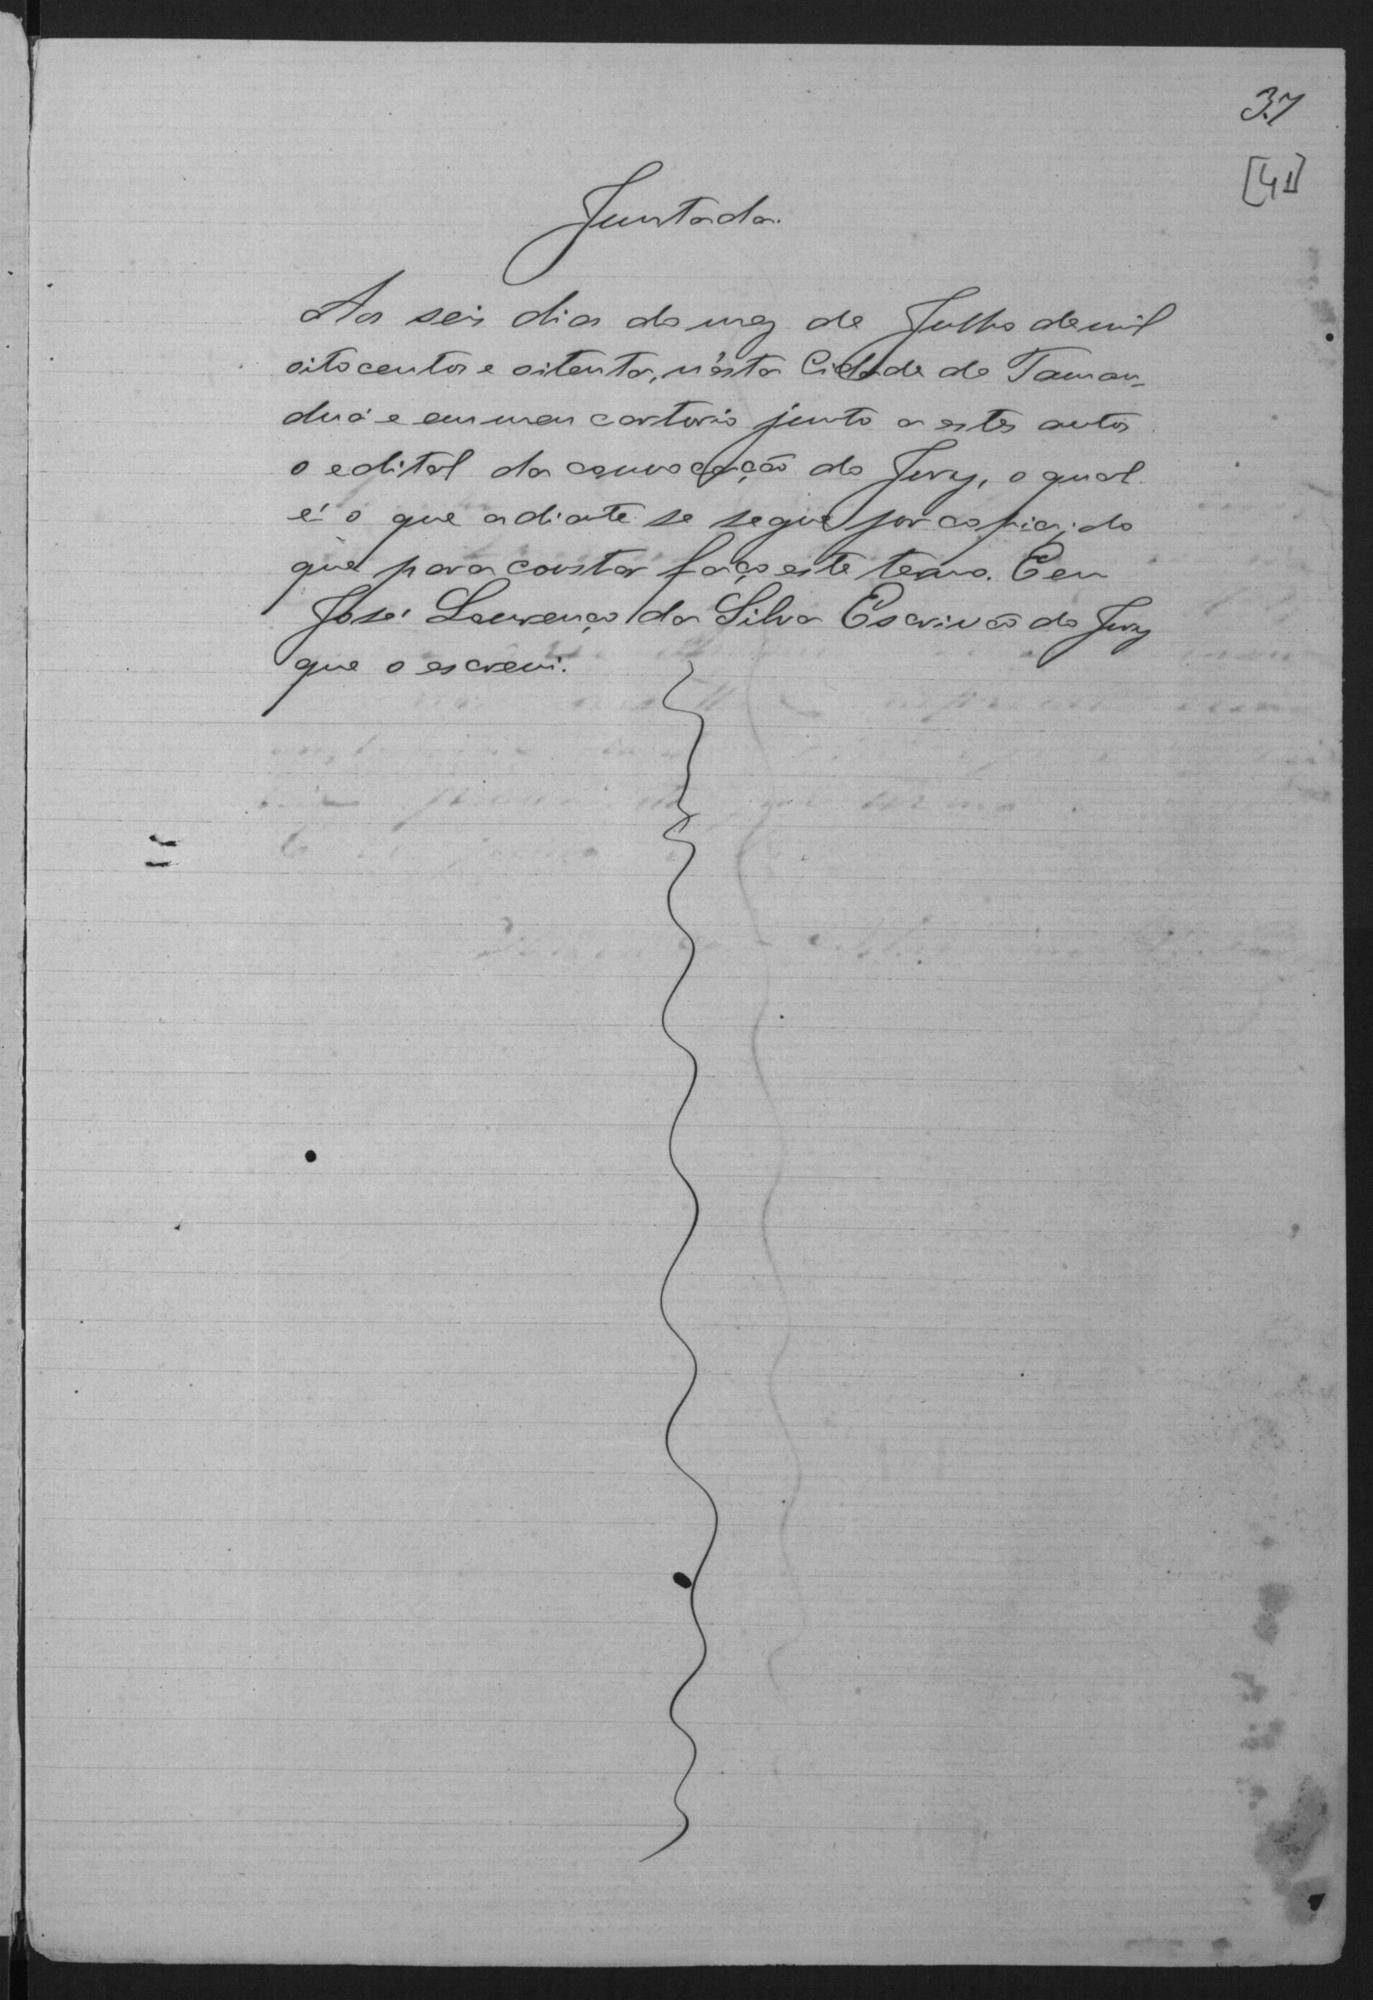 37
[41]
Juntada.
Aos seis dias do mez de Julho de mil
oito centos e oitenta, n'ésta Cidade do Taman-
duá e em meu cartorio junto a estes autos
o edital da convocação do Jury, o qual
é o que adiante se segue por copia; do
que para constar faço este termo. E eu
José Lourenço da Silva Escrivão do Jury
que o escrevi.